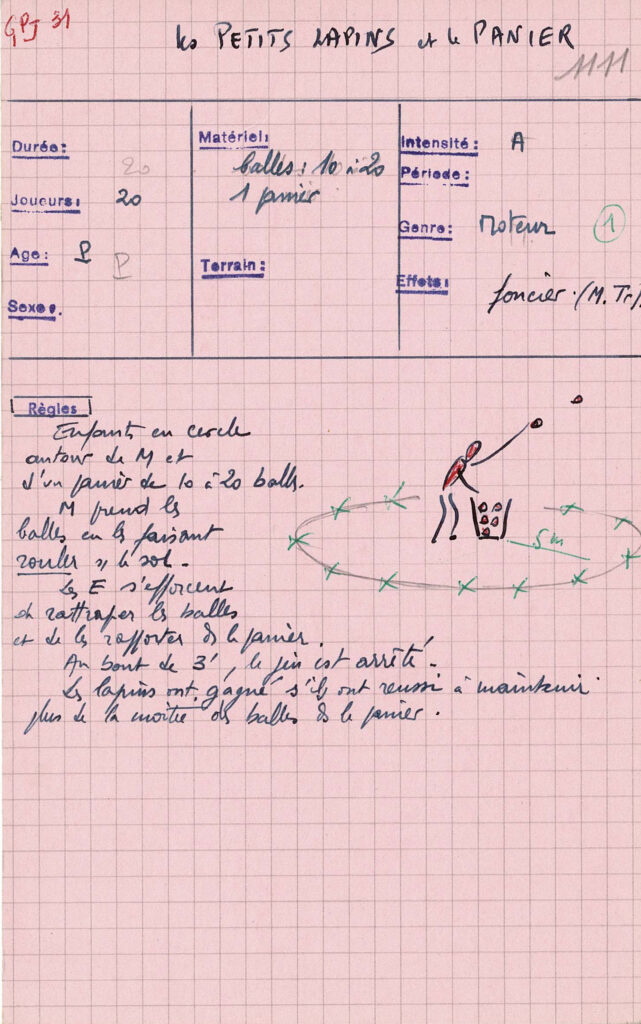 GPJ 31
les PETITS LAPINS et le PANIER
1111
Durée:
20
Joueurs: 20
Age: P P
Sexe:
Matériel:
balles: 10 à 20
1 panier
Terrain:
Intensité: A
Période:
Genre: Moteur 1
Effets:
foncier (M. Tr)
Règles
Enfants en cercle
autour de M et
d'un panier de 10 à 20 balls.
M prend les
balles en les faisant
rouler le sol.
Les E s'efforcent
de rattraper les balles
et de les rapporter ds le panier.
Au bout de 3', le jeu est arrêté.
Les lapins ont gagné s'ils ont réussi à maintenir
plus de la moitié des balles ds le panier.
5m